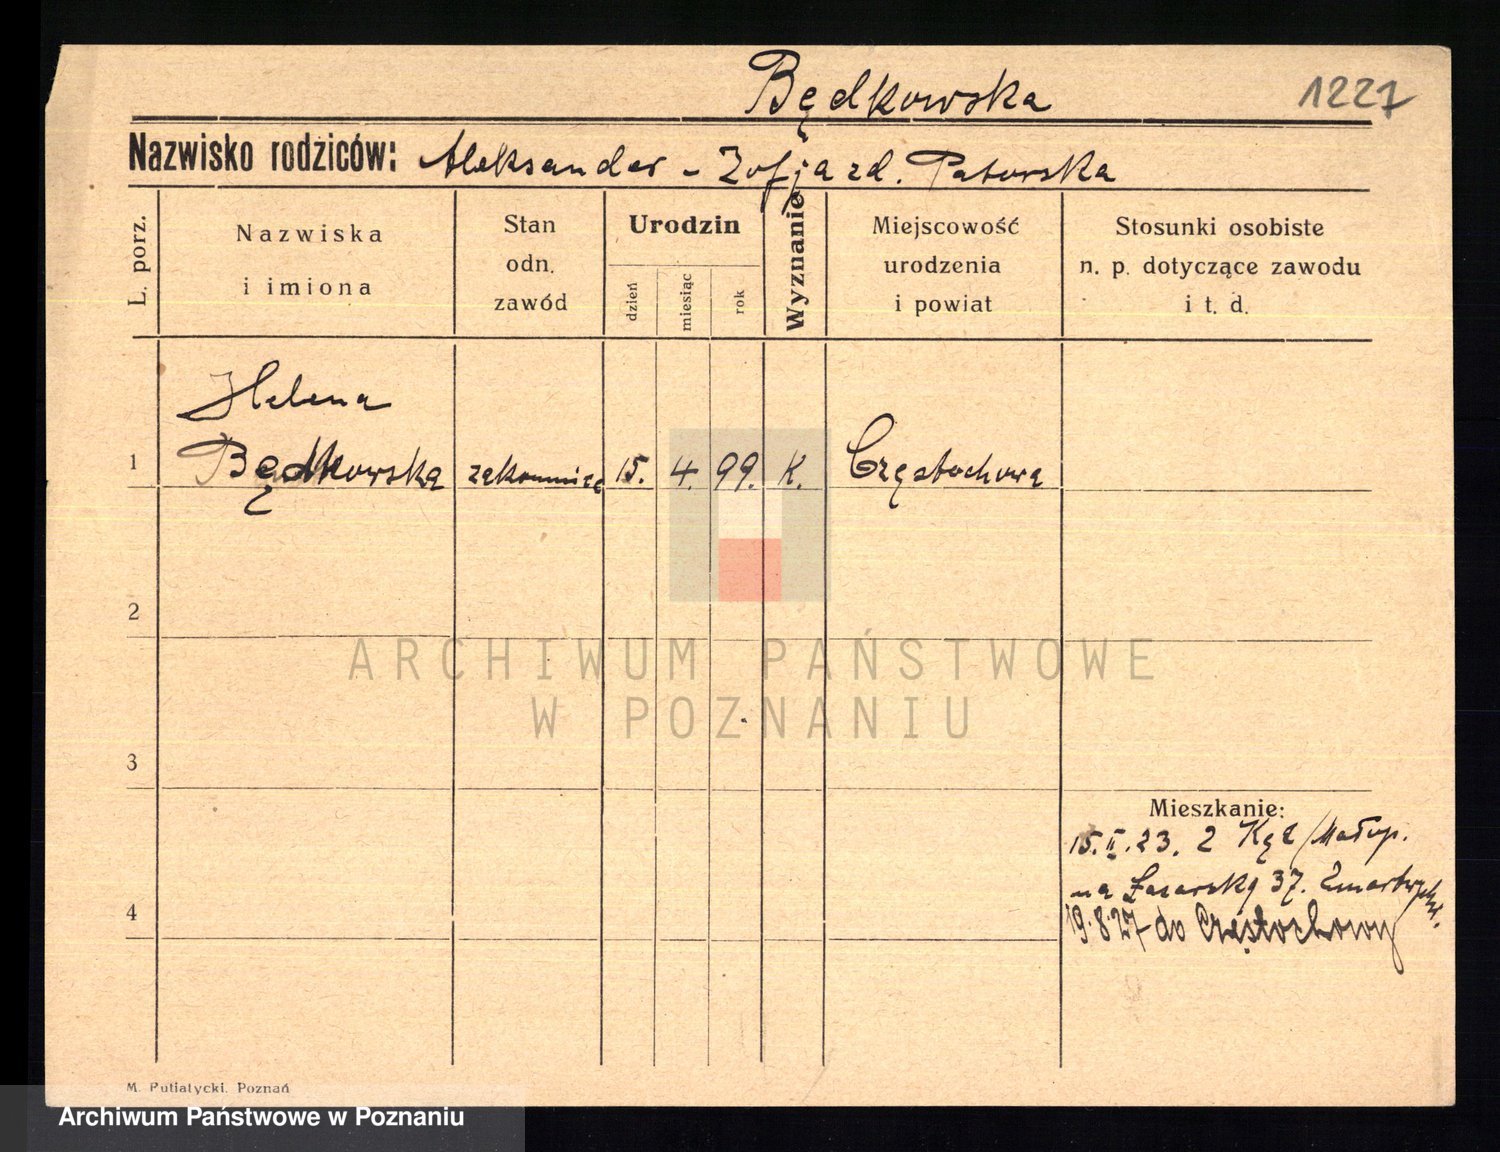 Będkowska
1227
Nazwisko rodziców: Aleksander - Zofja zd. Patorska
L. porz.
Nazwiska
i imiona
Stan
odn.
zawód
Urodzin
dzień
miesiąc
rok
Wyznanie
Miejscowość
urodzenia
i powiat
Stosunki osobiste
n. p. dotyczące zawodu
i t. d.
Helena
1 Będkowska zakonnica 15. 4. 99. K. Częstochowa
2
3
4
Mieszkanie:
15.II.23. z Kęt /Małop.
na Łazarską 37. Zmartwychwst.
19.8.27 do Częstochowy
ARCHIWUM PAŃSTWOWE
W POZNANIU
M. Putiatycki. Poznań
Archiwum Państwowe w Poznaniu